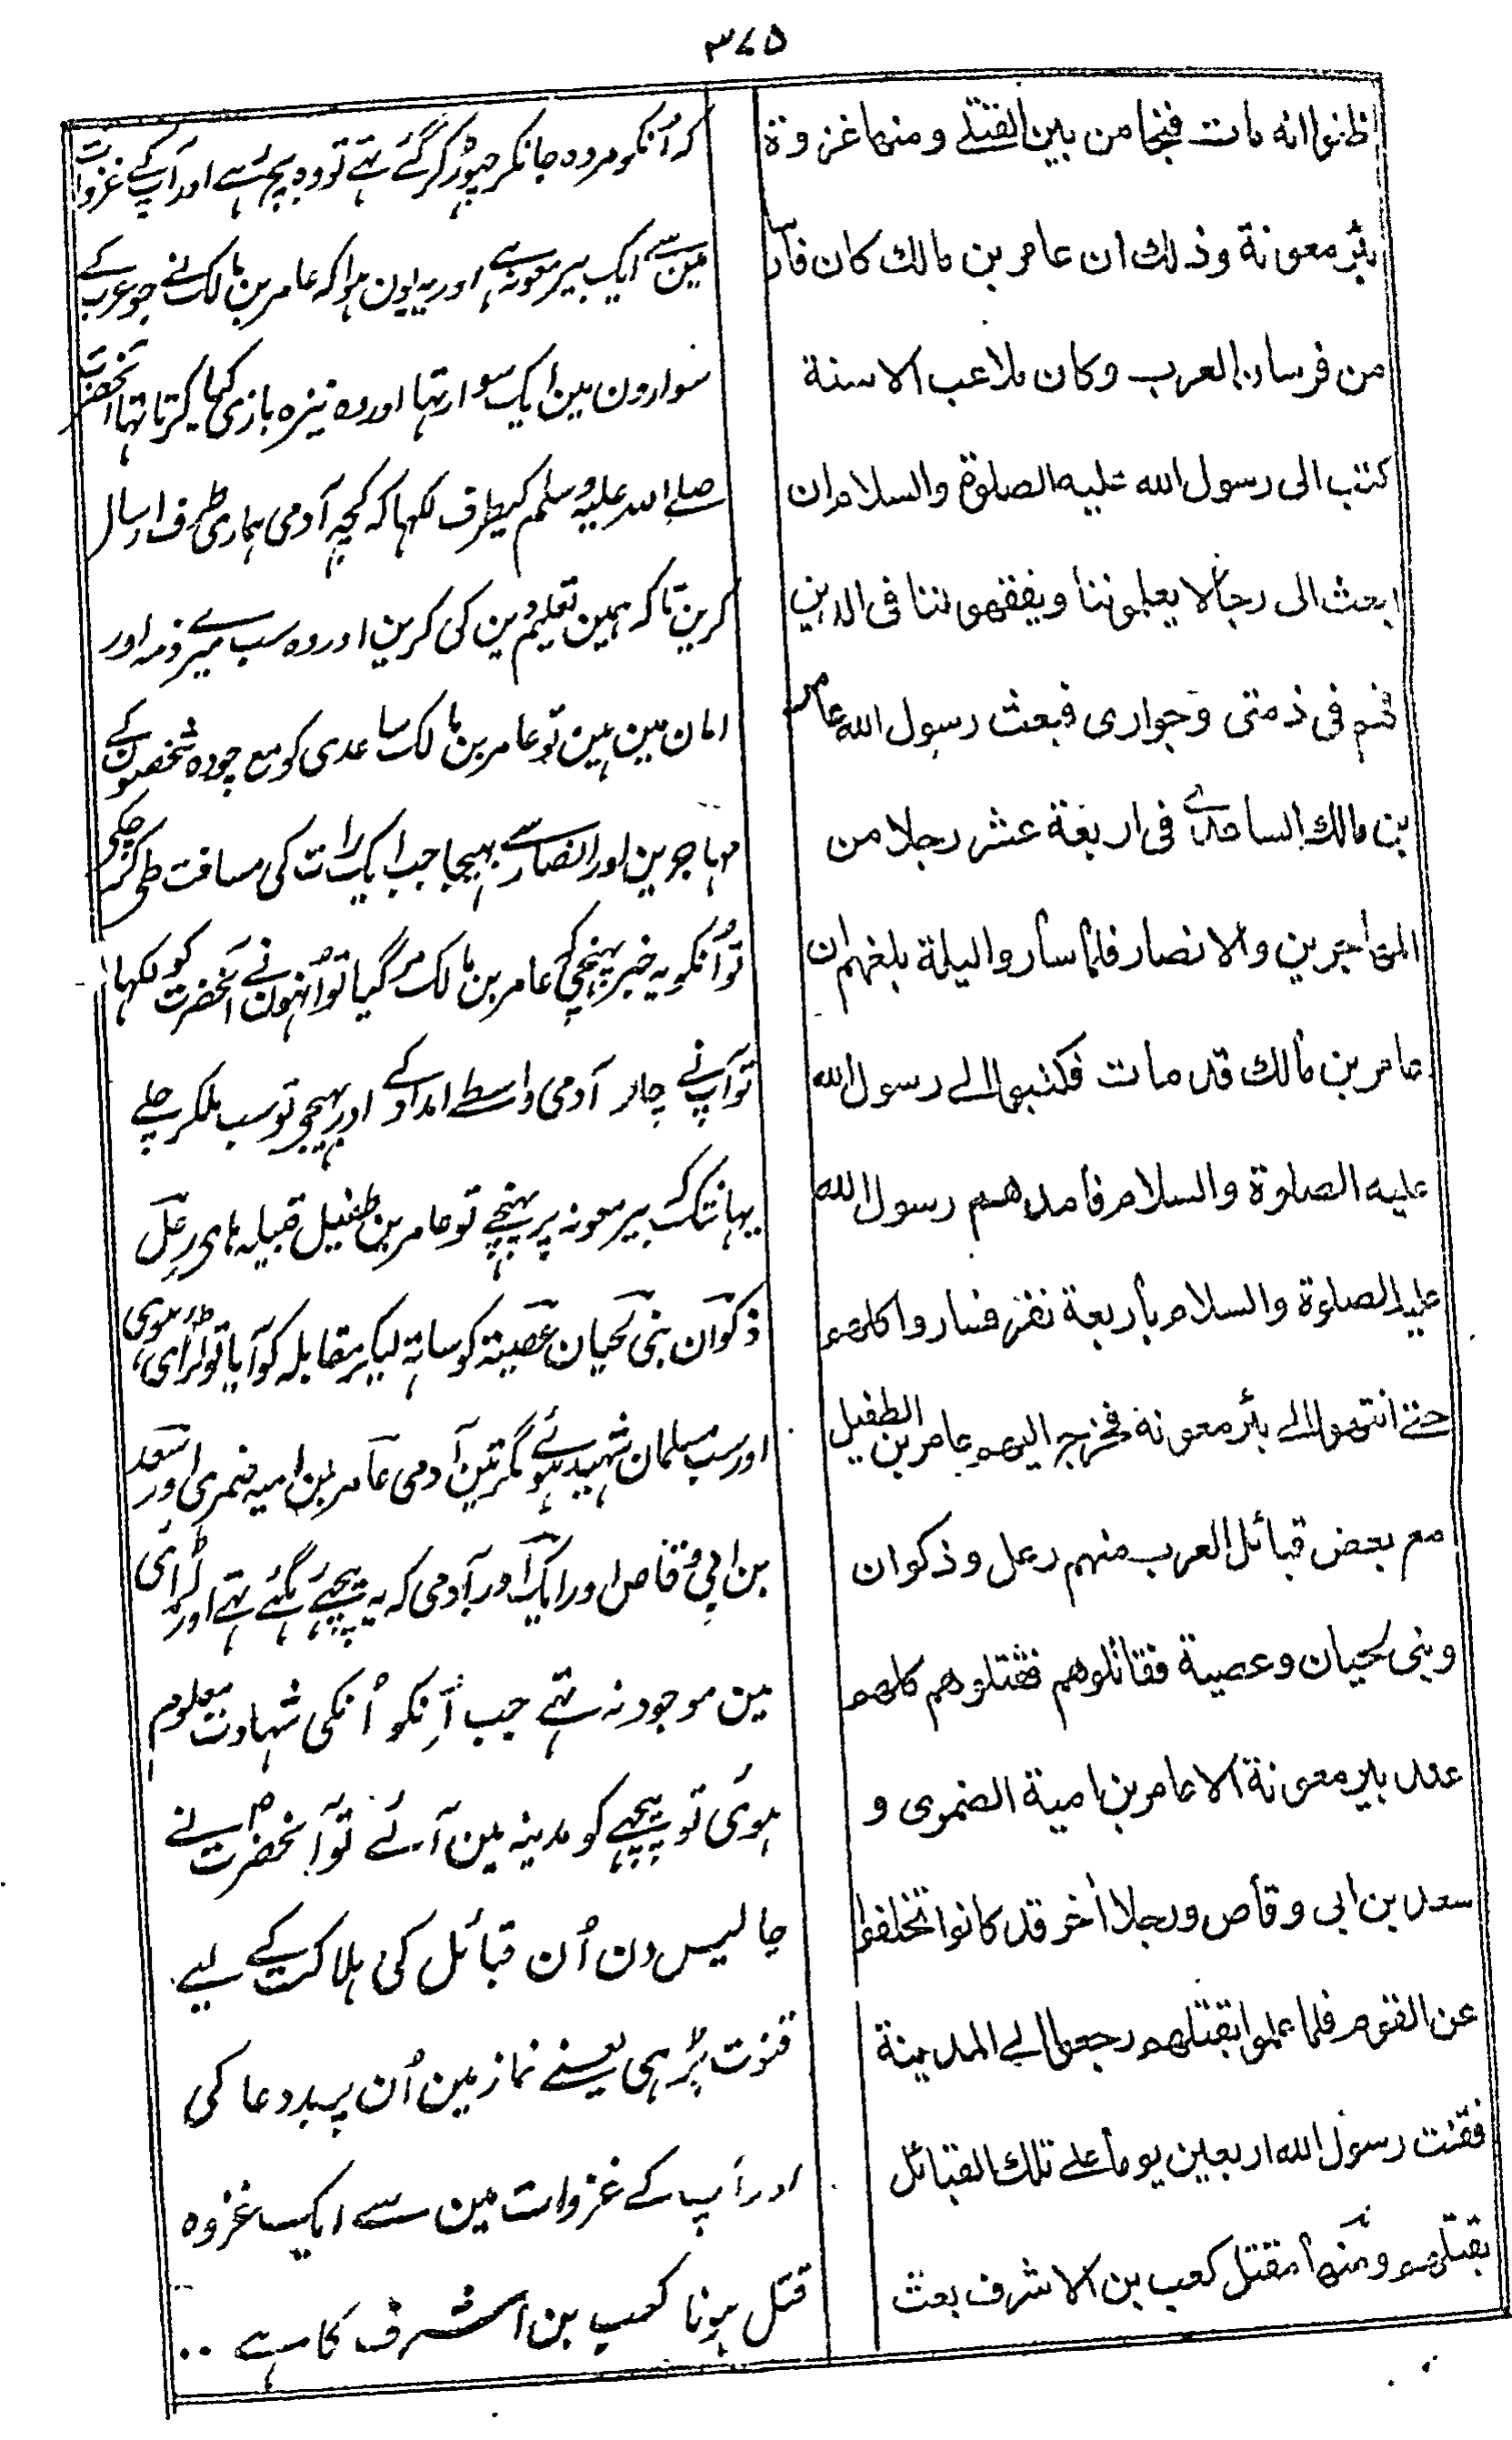 ٣٧٥
ظنوا انه مات فنجا من بين القتلے ومنها غزوة
بئر معونة وذلك ان عامر بن مالك كان فارسا
من فرسان العرب وكان ملاعب الاسنة
كتب الى رسول الله عليه الصلوة والسلام ان
ابعث الى رجالا يعلموننا ويفقهوننا فى الدين
فهم فى ذمتى وجوارى فبعث رسول الله عامر
بن مالك الساعدے فى اربعة عشر رجلا من
المهاجرين والانصار فلما ساروا ليلة بلغهم ان
عامر بن مالك قد مات فكتبوا الے رسول الله
عليه الصلوة والسلام فامدهم رسول الله
عليه الصلوة والسلام باربعة نفر فساروا كلهم
حتے انتهوا الے بئر معونة فخرج اليهم عامر بن الطفيل
مع بعض قبائل العرب منهم رعل وذكوان
وبنى لحيان وعصية فقاتلوهم فقتلوهم كلهم
عند بئر معونة الا عامر بن امية الضمرى و
سعد بن ابى وقاص ورجلا أخر قد كانوا تخلفوا
عن القوم فلما علموا بقتلهم رجعوا الے المدينة
فقنت رسول الله اربعين يوما علے تلك القبائل
بقتلهم ومنها مقتل كعب بن الاشرف بعث
کہ اُنکو مردہ جانکر چھوڑ کر گئے تہے تو وہ بچ رہے اور آپ کے غزوات
مین سے ایک بیر معونہ ہے اور یہ یون ہوا کہ عامر بن مالک نے جو عرب کے
سوارون مین ایک سوار تہا اور وہ نیزہ بازی کیا کرتا تہا آنحضرت
صلے اللہ علیہ وسلم کیطرف لکہا کہ کچہہ آدمی ہماری طرف ارسال
کرین تاکہ ہمین تعلیم دین کی کرین اور وہ سب میرے ذمہ اور
امان مین ہین تو عامر بن مالک ساعدی کو مع چودہ شخصون کے
مہاجرین اور انصار سے بہیجا جب ایک رات کی مسافت طی کر چکی
تو اُنکو یہ خبر پہنچی کہ عامر بن مالک مر گیا تو اُنہون نے آنحضرت کو لکہا
تو آپ نے چار آدمی واسطے امداد کے اور بہیجے تو سب ملکر چلے
یہانتک کہ بیر معونہ پر پہنچے تو عامر بن طفیل قبیلہ ہای رعل
ذکوان بنی لحیان عصیۃ کو ساتہ لیکر مقابلہ کو آیا تو لڑائی ہوئی
اور سب مسلمان شہید ہوئے مگر تین آدمی عامر بن امیہ ضمری اور سعد
بن ابی وقاص اور ایک اور آدمی کہ یہ پیچہے رہ گئے تہے اور لڑائی
مین موجود نہ تہے جب اُنکو اُنکی شہادت معلوم
ہوئی تو پیچہے کو مدینہ مین آئے تو آنحضرت ؐ نے
چالیس دن اُن قبائل کی ہلاکت کے لیے
قنوت پڑہی یعنے نماز مین اُن پر بددعا کی
اور آپ کے غزوات مین سے ایک غزوہ
قتل ہونا کعب بن اشرف کا ہے ۰۰